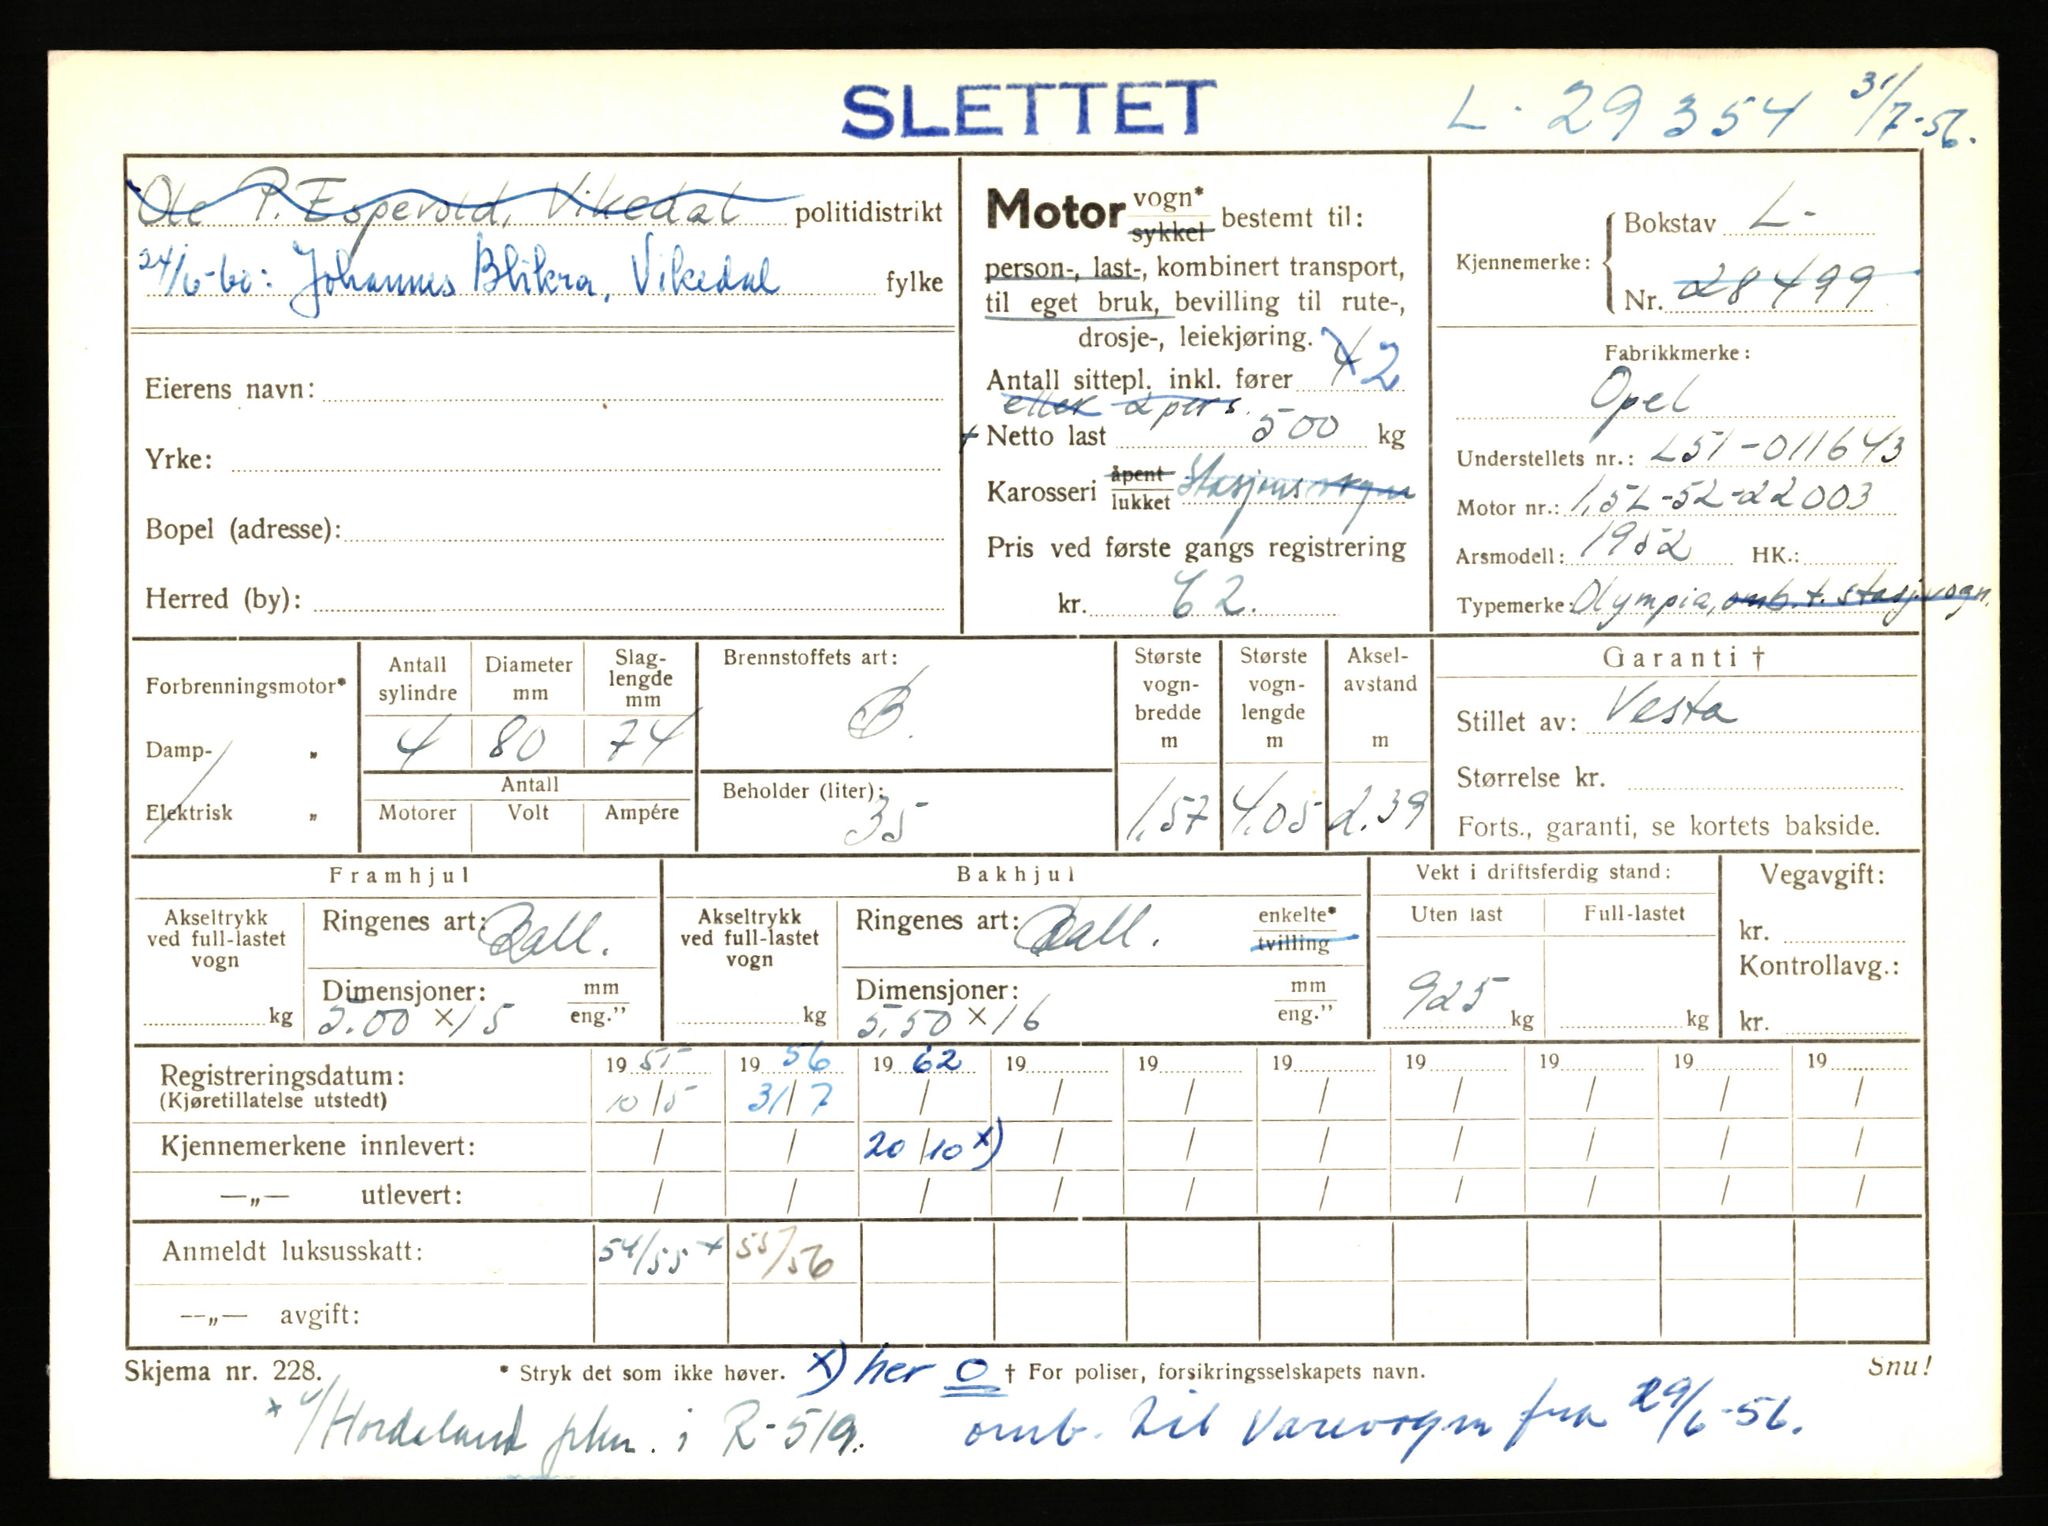 SLETTET
L - 29354 31/7-56.
Ole P. Espevold, Vikedal politidistrikt
24/6-60: Johannes Blikra, Vikedal fylke
Eierens navn:
Yrke:
Bopel (adresse):
Herred (by):
Motor vogn* sykkel bestemt til:
person-, last-, kombinert transport,
til eget bruk, bevilling til rute-,
drosje-, leiekjøring.
Antall sittepl. inkl. fører 4 2
eller 2 pers.
+ Netto last 500 kg
Karosseri åpent lukket Stasjonsvogn
Pris ved første gangs registrering
kr. 62.
Kjennemerke: Bokstav L-
Nr. 28499
Fabrikkmerke:
Opel
Understellets nr.: L51-011643
Motor nr.: 1,5L-52-22003
Arsmodell: 1952 HK.:
Typemerke: Olympia, omb. t. stasj.vogn.
Forbrenningsmotor*
Damp- „
Elektrisk „
Antall sylindre Diameter mm Slag-lengde mm
4 80 74
Antall
Motorer Volt Ampére
Brennstoffets art:
B.
Beholder (liter):
35
Største vogn-bredde m Største vogn-lengde m Aksel-avstand m
1,57 4.05 2.39
Garanti †
Stillet av: Vesta
Størrelse kr.
Forts., garanti, se kortets bakside.
Framhjul
Akseltrykk ved full-lastet vogn
kg
Ringenes art: Ball.
Dimensjoner: mm eng.”
5.00 x 15
Bakhjul
Akseltrykk ved full-lastet vogn
kg
Ringenes art: Ball. enkelte* tvilling
Dimensjoner: mm eng.”
5.50 x 16
Vekt i driftsferdig stand:
Uten last Full-lastet
925 kg kg
Vegavgift:
kr.
Kontrollavg.:
kr.
19 55 19 56 19 62 19 19 19 19 19 19 19
Registreringsdatum: 10/5 31/7 / / / / / / / /
(Kjøretillatelse utstedt)
Kjennemerkene innlevert: / / 20/10 x) / / / / / / /
—„— utlevert: / / / / / / / / / /
Anmeldt luksusskatt: 54/55 + 55/56
—„— avgift:
Skjema nr. 228. * Stryk det som ikke høver. x) her O † For poliser, forsikringsselskapets navn. Snu!
* v/Hordaland phm. i R-519. omb. til Varevogn fra 29/6-56.